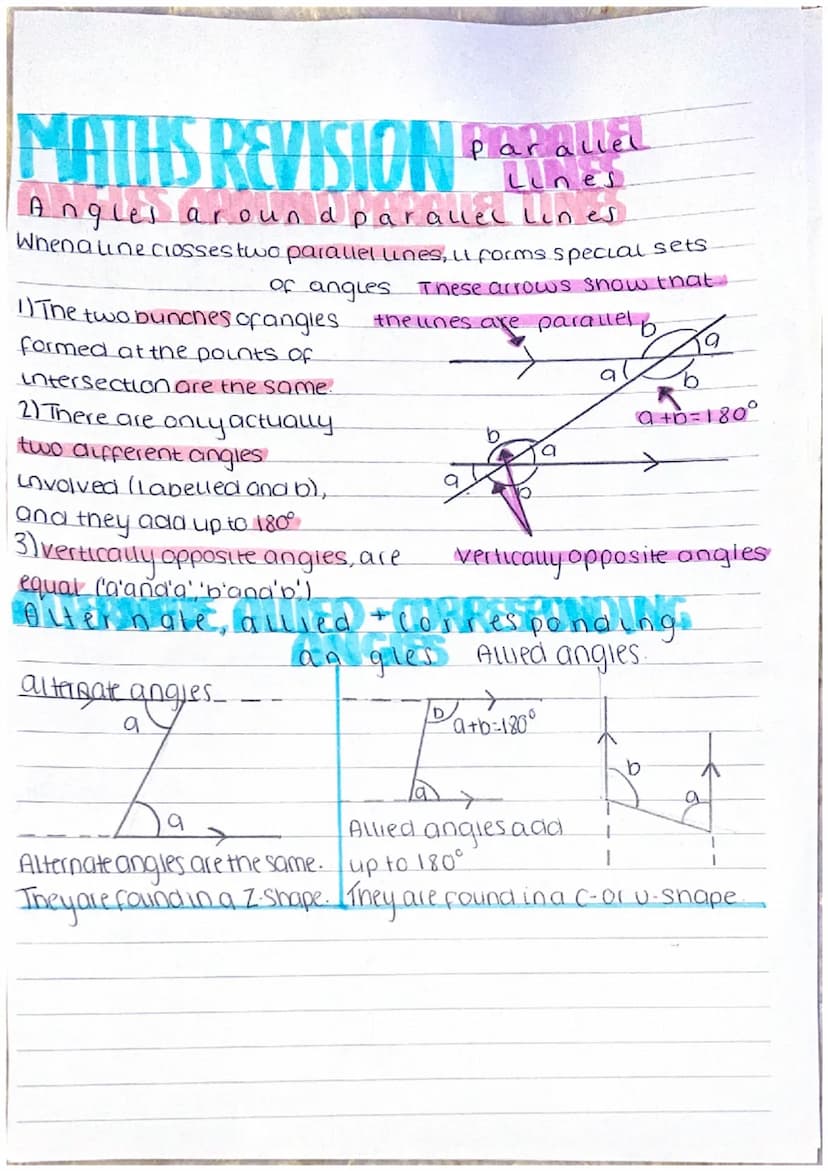 MATHS REVISION parallel
lines
Angles around parallel lines
When a line crosses two parallel lines, it forms special sets
of angles These arrows show that
the lines are parallel
1) The two bunches of angles
formed at the points of
intersection are the same.
2) There are only actually
two different angles
involved (labelled a and b),
and they add up to 180°
3) vertically opposite angles, are
equal ('a' and 'a', 'b' and 'b')
b
a
a
b
a+b=180°
b
a
a
b
vertically opposite angles
Alternate, allied + corresponding
angles Allied angles.
alternate angles
a
a
Alternate angles are the same.
They are found in a Z-shape.
b
a+b=180°
a
b
a
Allied angles add
up to 180°
They are found in a C- or U-shape.